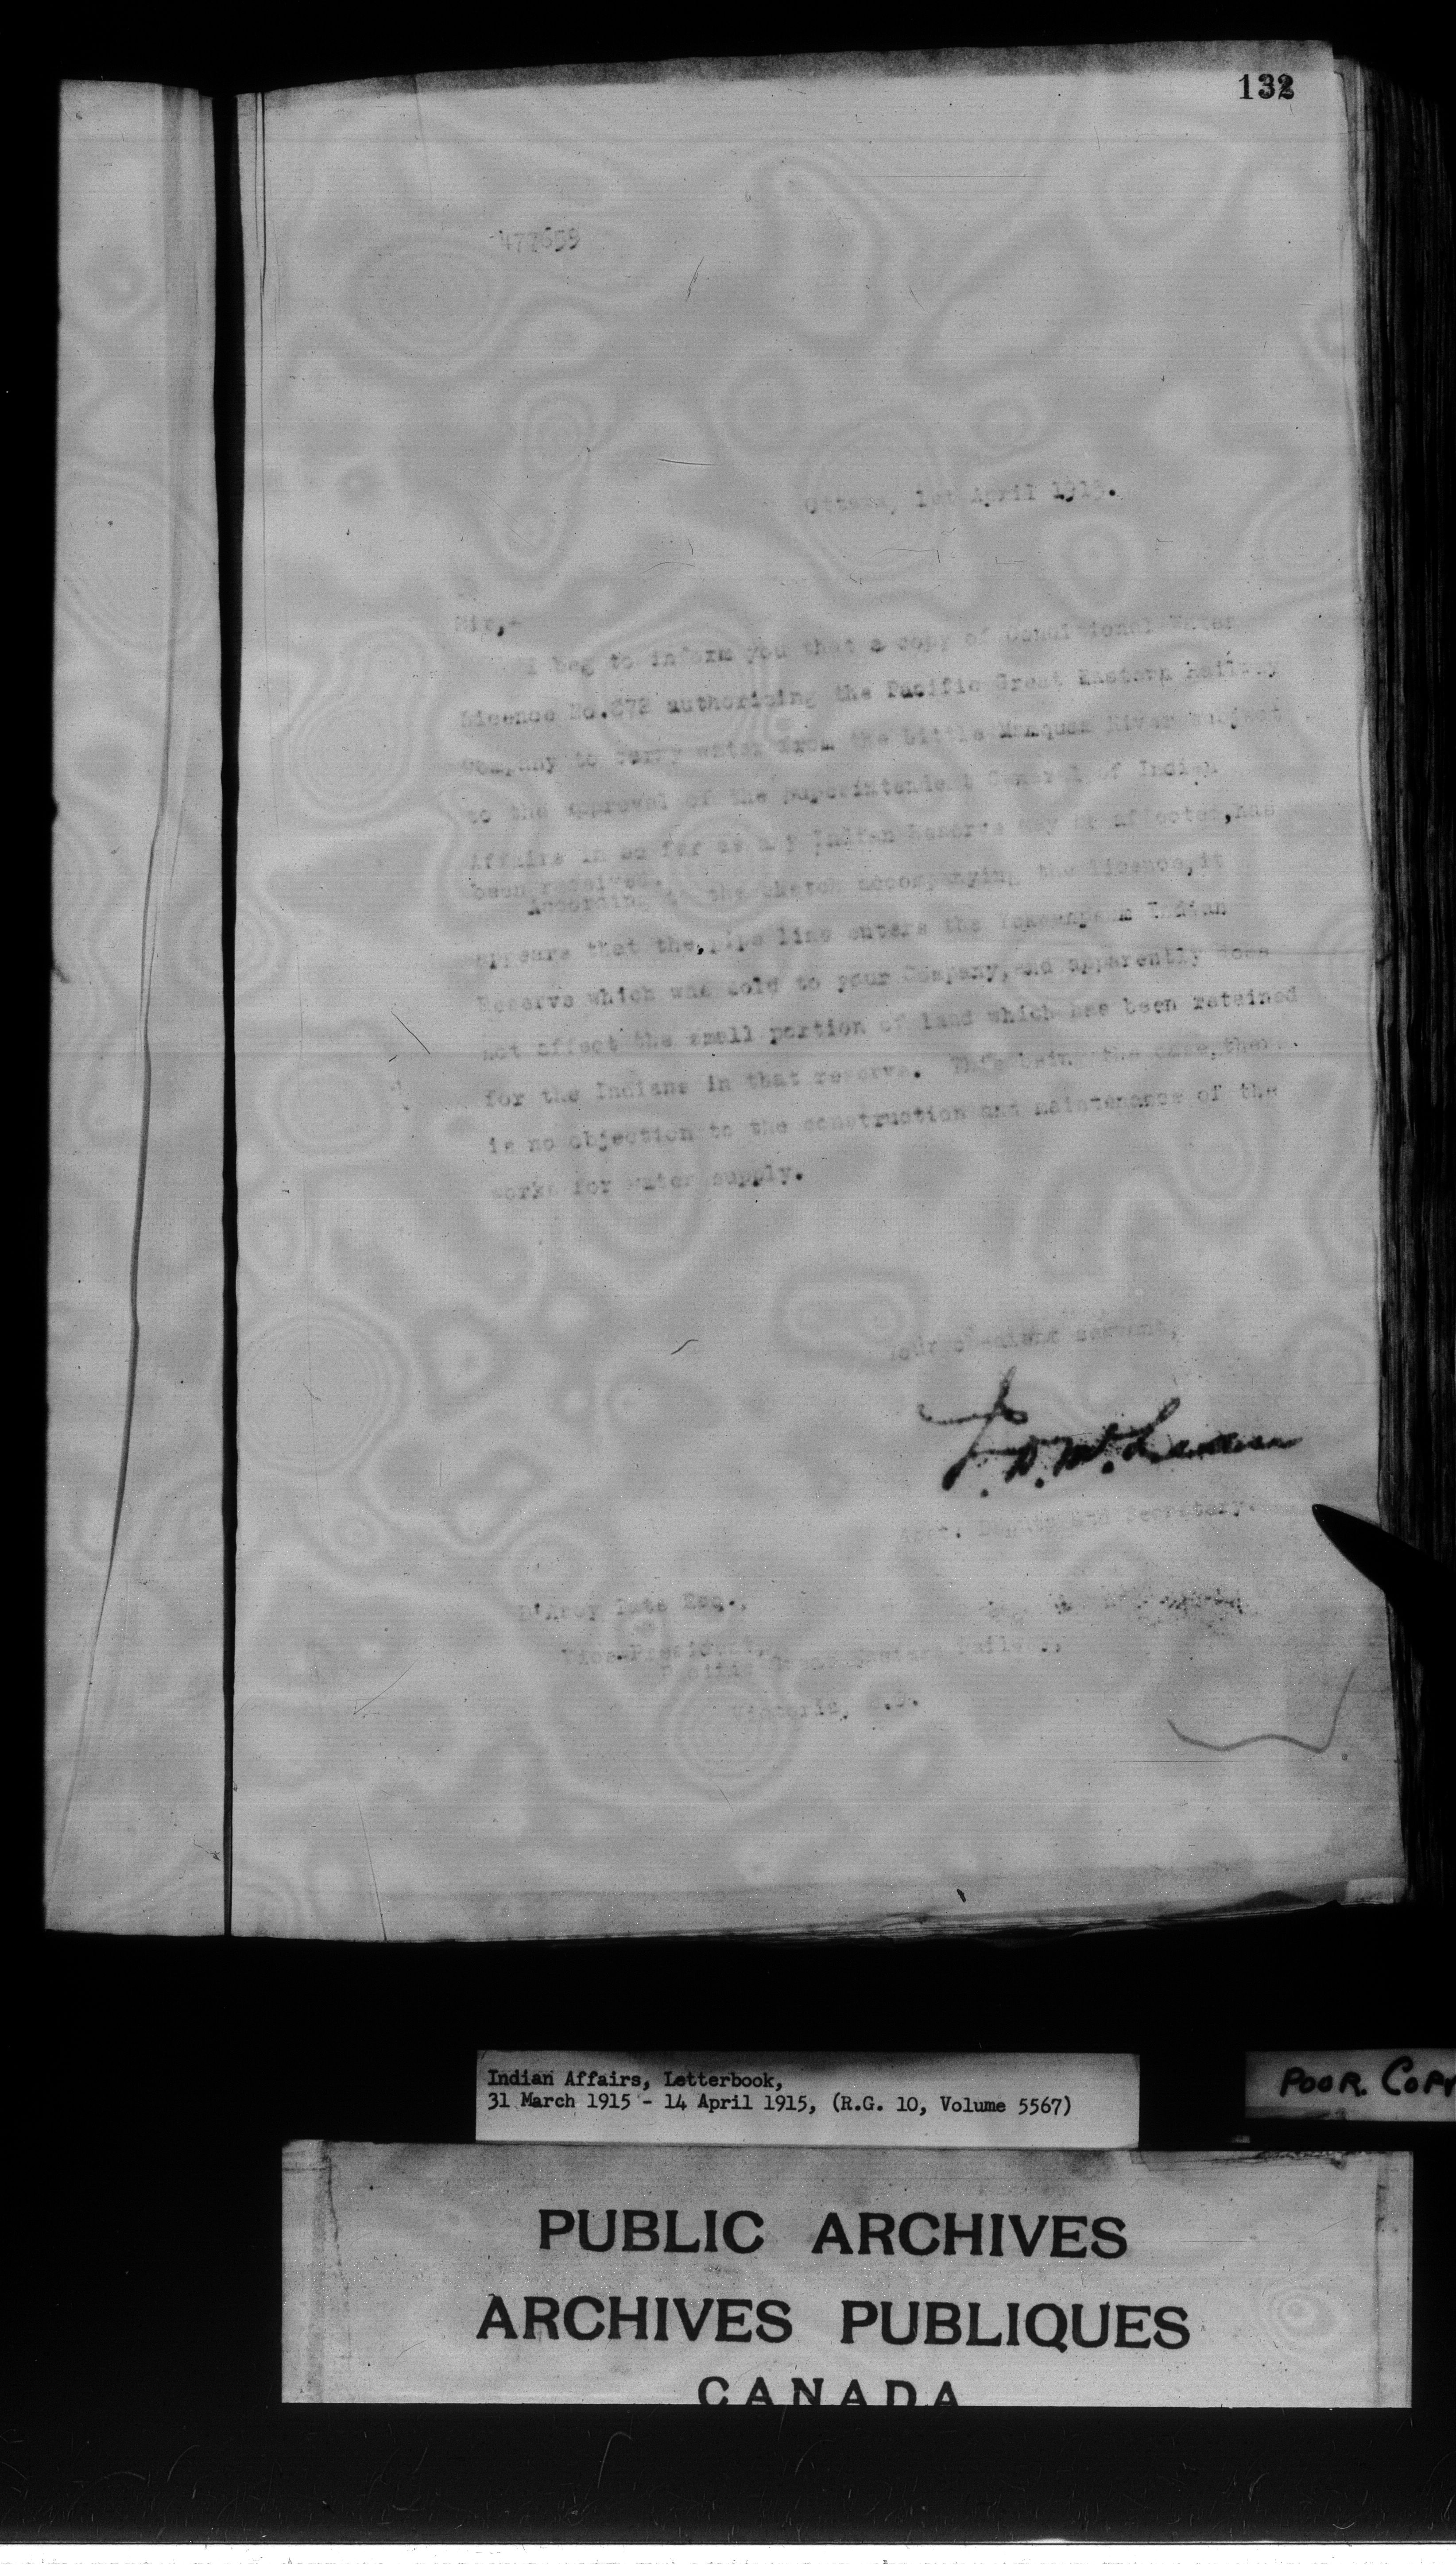 132
477659
Ottawa, 1st April 1915.
Sir,-
I beg to inform you that a copy of Conditional Water
Licence No.872 authorizing the Pacific Great Eastern Railway
Company to carry water from the Little Mamquam River subject
to the approval of the Superintendent General of Indian
Affairs in so far as any Indian Reserve may be affected, has
been received.
According to the sketch accompanying the licence, it
appears that the pipe line enters the Indian
Reserve which was sold to your Company, and apparently does
not affect the small portion of land which has been retained
for the Indians in that reserve. This being the case, there
is no objection to the construction and maintenance of the
works for water supply.
Your obedient servant,
J. D. McLean
Asst. Deputy and Secretary.
D'Arcy Tate Esq.,
Vice-President,
Pacific Great Eastern Railway,
Victoria, B.C.
Indian Affairs, Letterbook,
31 March 1915 - 14 April 1915, (R.G. 10, Volume 5567)
POOR. COPY
PUBLIC ARCHIVES
ARCHIVES PUBLIQUES
CANADA